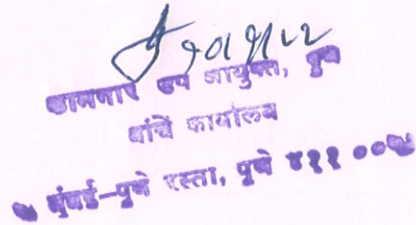 कामगार उप आयुक्त, पुणे
यांचे कार्यालय
मुंबई-पुणे रस्ता, पुणे ४११ ००५